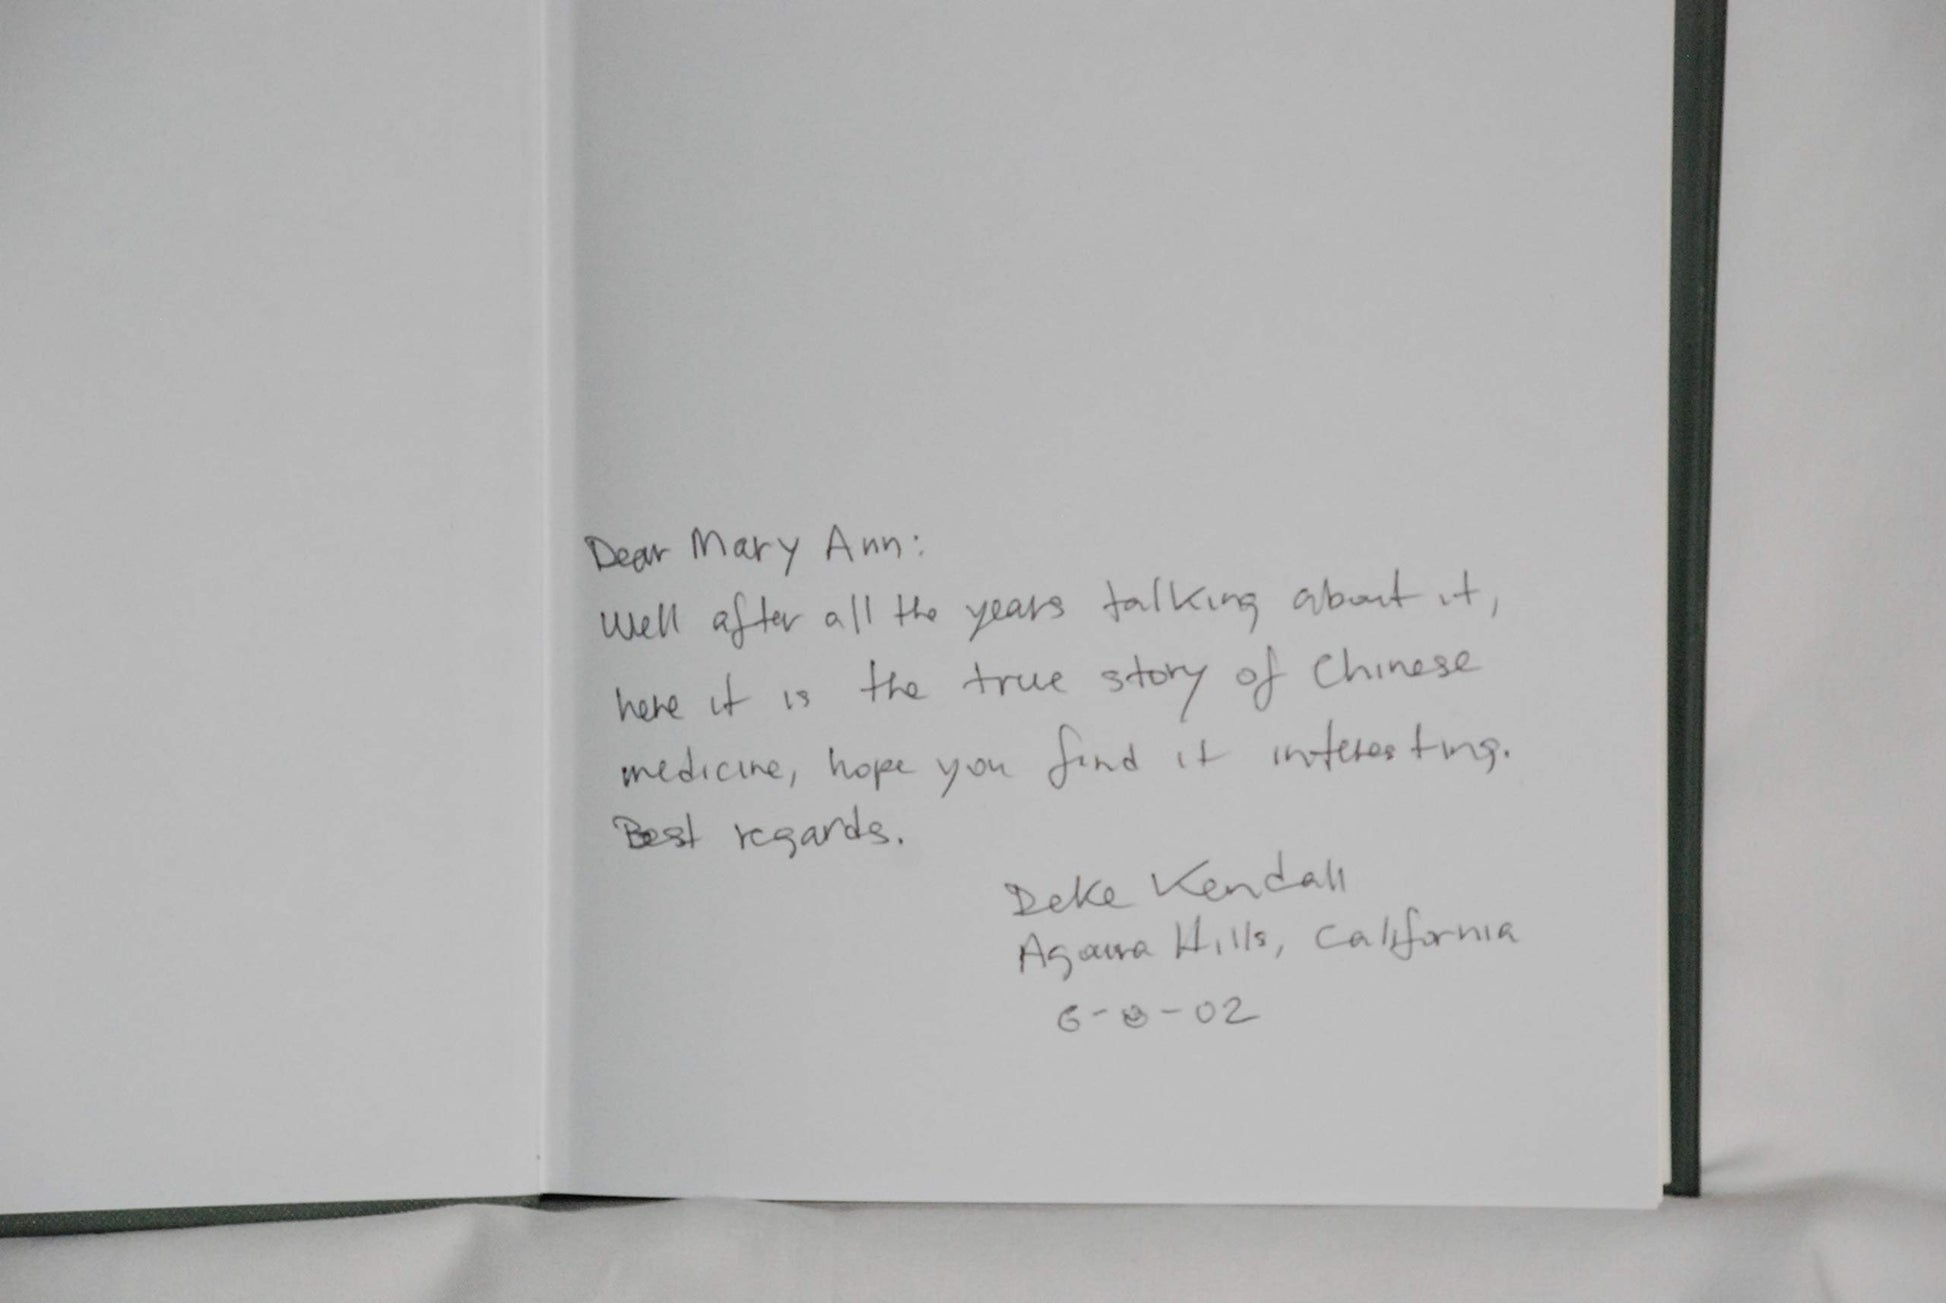 Dear Mary Ann:
Well after all the years talking about it,
here it is the true story of Chinese
medicine, hope you find it interesting.
Best regards.
Deke Kendall
Agoura Hills, California
6-8-02